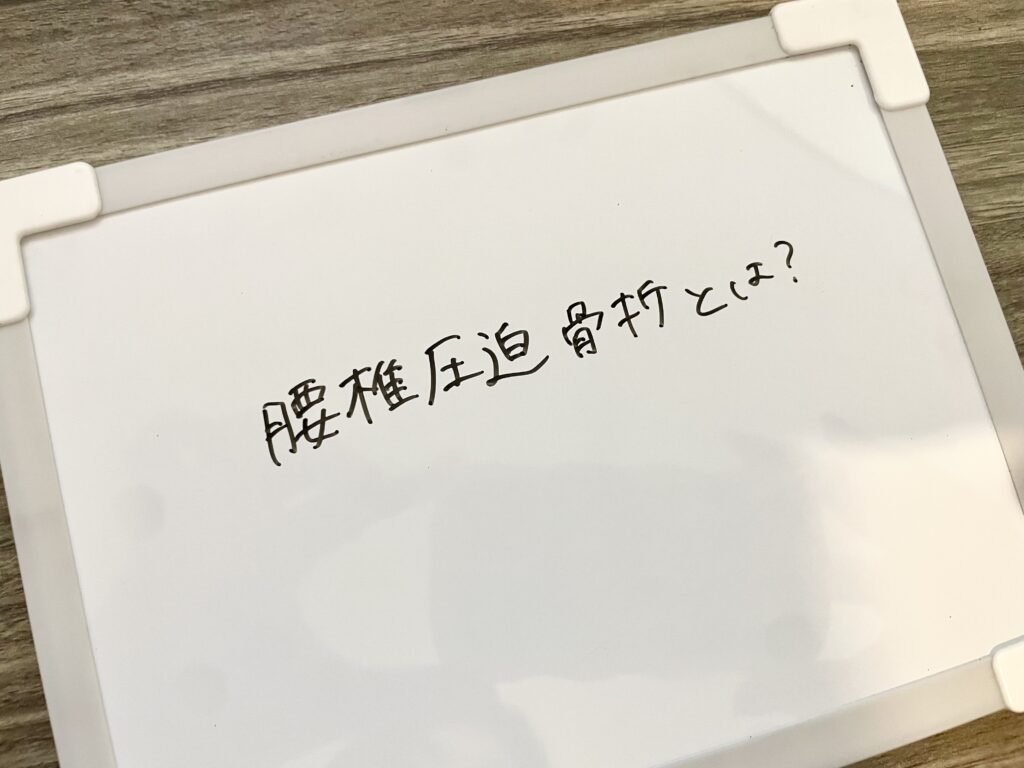 腰椎圧迫骨折とは?